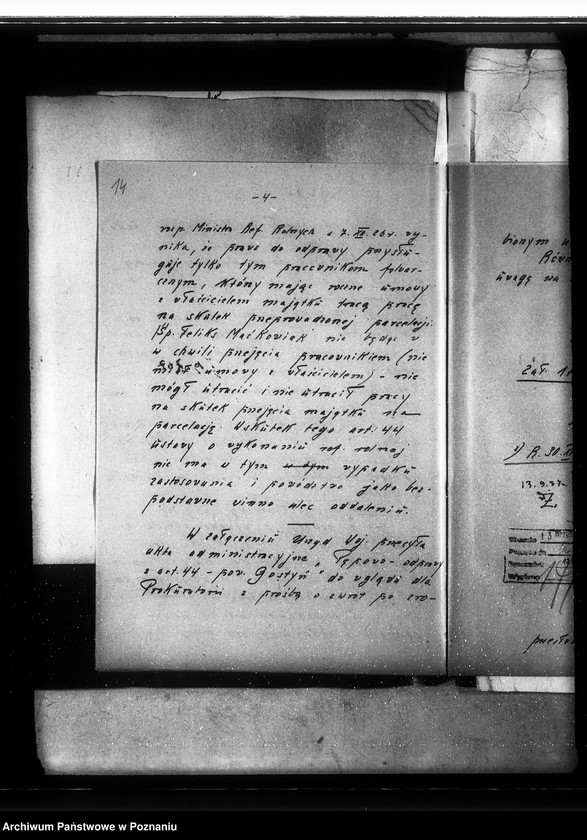 14
- 4 -
rozp. Ministra Ref. Rolnych z 7. XII. 26 r. wy-
nika, że prawo do odprawy przysłu-
guje tylko tym pracownikom folwar-
cznym, którzy mając roczne umowy
z właścicielem majątku tracą pracę
na skutek przeprowadzonej parcelacji.
Śp. Feliks Maćkowiak nie będąc
w chwili przejęcia pracownikiem (nie
umowy z właścicielem) - nie
mógł utracić i nie utracił pracy
na skutek przejęcia majątku na
parcelację. Wskutek tego art. 44
ustawy o wykonaniu ref. rolnej
nie ma w tym w tym wypadku
zastosowania i powództwo jako bez-
podstawne winno ulec oddaleniu.
W załączeniu Urząd Woj. przesyła
akta administracyjne „Pępowo - odprawy
z art. 44 - pow. Gostyń" do wglądu dla
Prokuratorii z prośbą o zwrot po
bionym
Równ
uwagę na
zał. 1
1) R. 30. XI
13. 9. 37.
przesłan
Archiwum Państwowe w Poznaniu